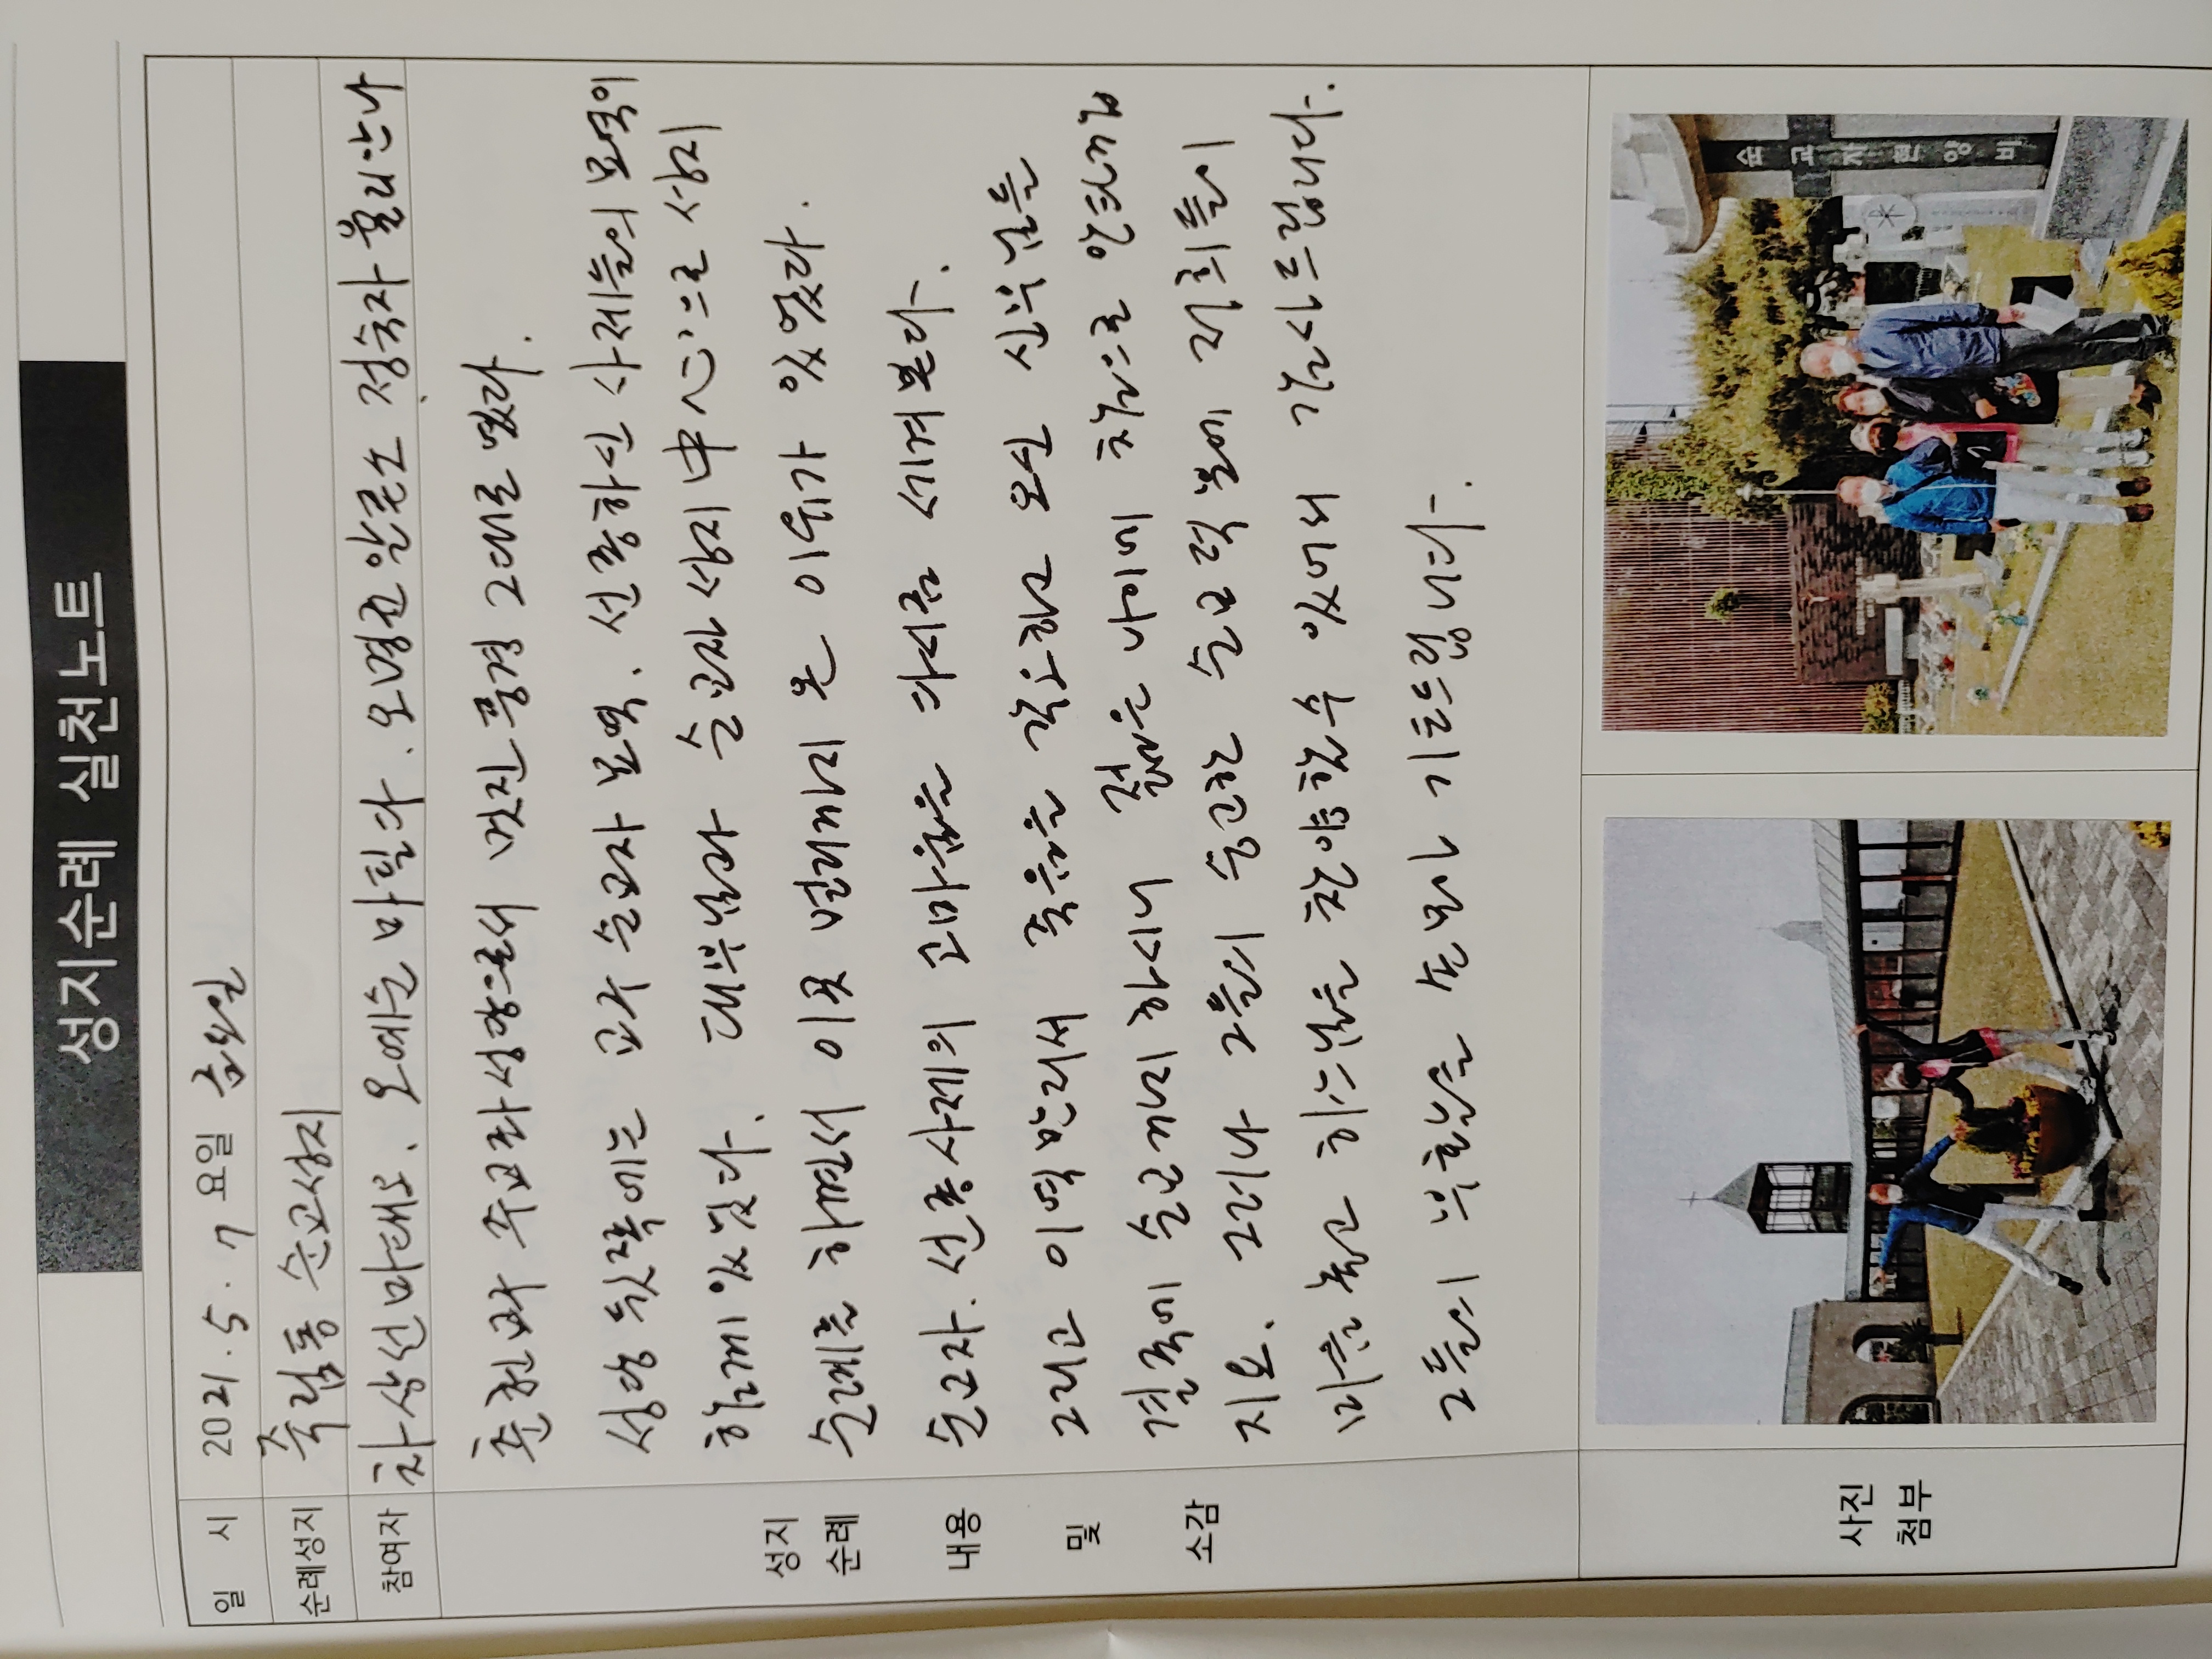 성지순례 실천노트
일 시 2021. 5. 7 요일 금요일
순례성지 죽림동 순교성지
참여자 차상선 마태오. 오예순 마틸다. 오명균 알폰소 정숙자 율리안나
춘천교구 주교좌성당으로서 멋진 풍경 그대로 였다.
성당 뒷쪽에는 교구 순교자 묘역. 선종하신 사제들의 묘역이
함께 있었다. 대부님과 순교자 성지 中心으로 성지
순례를 하면서 이곳 멀리까지 온 이유가 있었다.
순교자. 선종사제의 고마움을 다시금 세겨본다.
그리고 이역만리서 죽음을 각오하고 오신 신부님들
결국에 순교까지 하시니 젊은 나이에 참으로 안타깝
지요. 그러나 그들의 숭고한 순교 덕분에 저희들이
마음 놓고 하느님을 찬양할 수 있어서 감사드립니다.
그들의 부활을 손모아 기도드립니다.
성지
순례
내용
및
소감
사진
첨부
순교자현양비